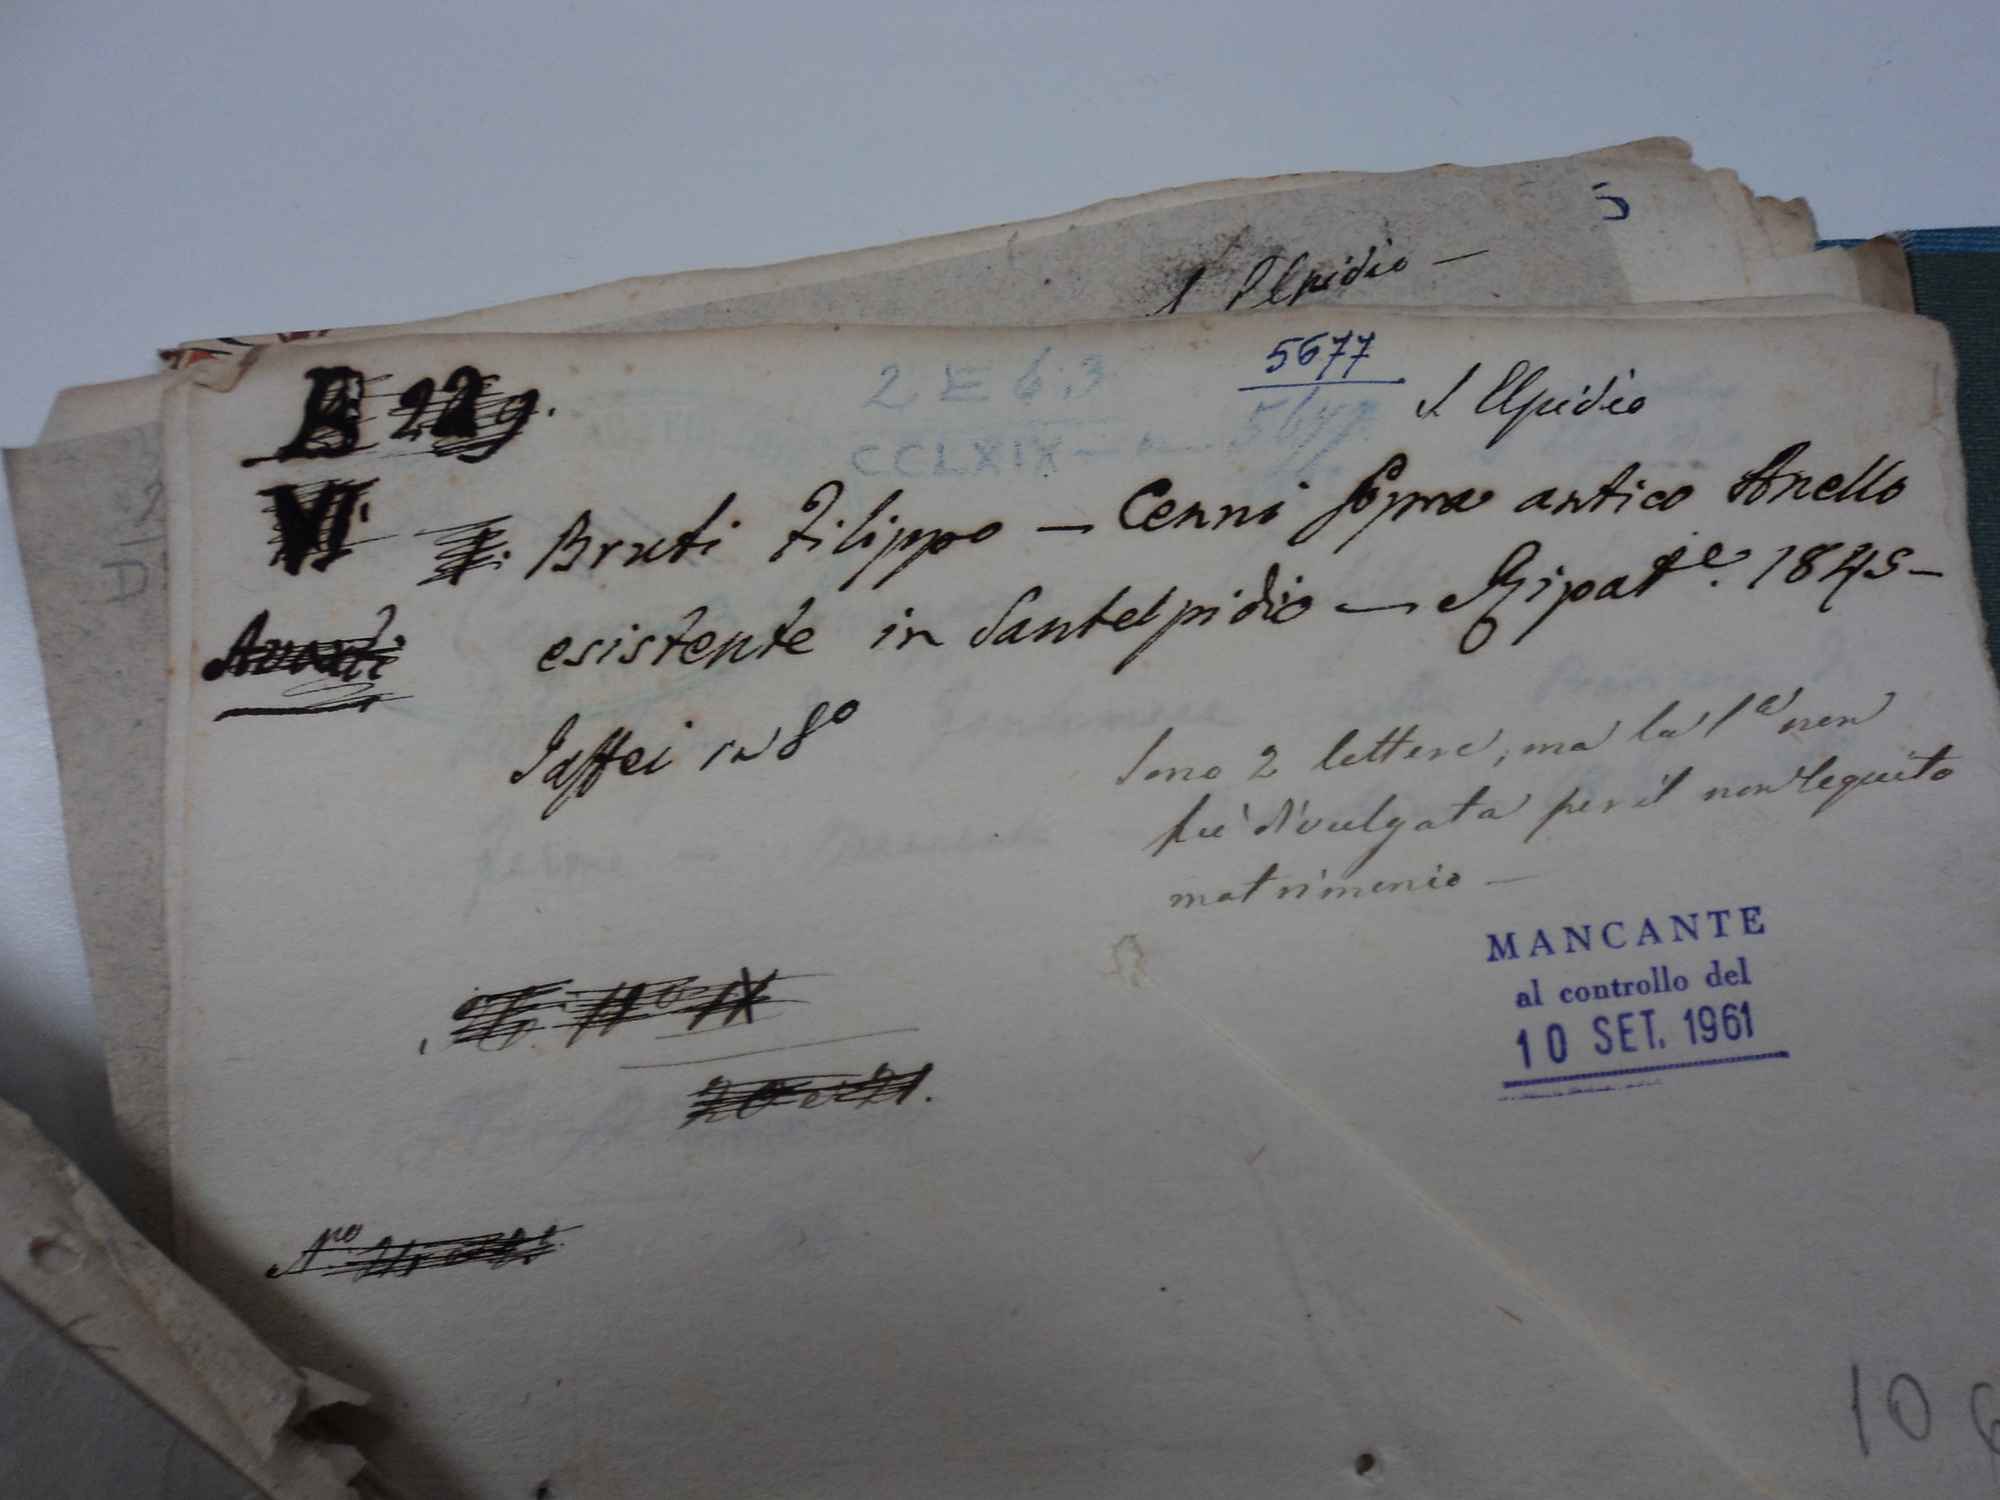 5
S Elpidio —
5677
S Elpidio
2 E 63
CCLXIX — n — 5677
B 22 g.
VI. I. Bruti Filippo — Cenni sopra antico Anello
Avanti esistente in Santelpidio — Ripat.e 1845 —
Jaffei in 8º
Sono 2 lettere, ma la 1ª non
fu divulgata per il non seguito
matrimonio —
MANCANTE
al controllo del
10 SET. 1961
20 e 21.
Nº
10